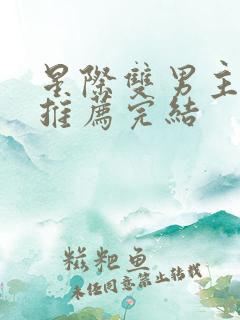 星際雙男主
推薦完結
糍粑鱼
未经同意禁止转载